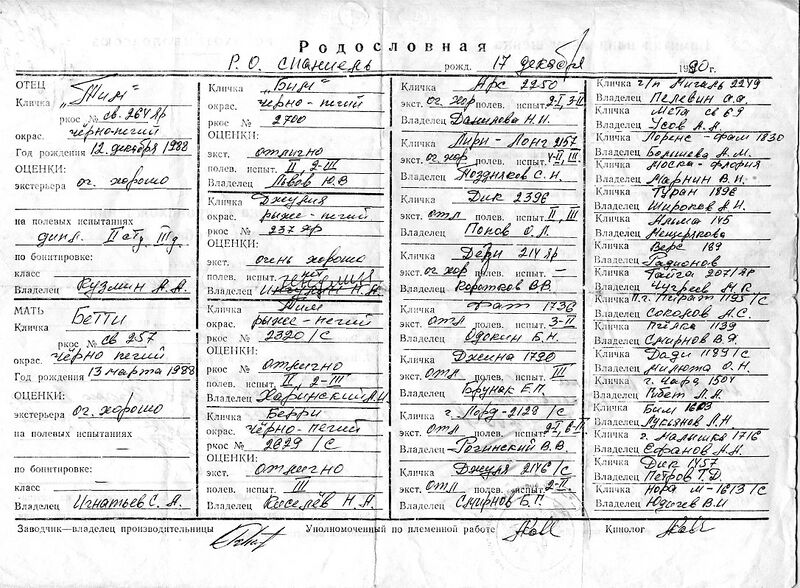 Родословная
Р. О. спаниель рожд. 17 декабря 1990г.
ОТЕЦ
Кличка „Тим“
ркос № св. 264 яр
окрас. чёрно-пегий
Год рождения 12. декабря 1988
ОЦЕНКИ:
экстерьера оч. хорошо
на полевых испытаниях
дипл. II ст, III д.
по бонитировке:
класс
Владелец Кузмин А.А.
МАТЬ
Кличка Бетти
ркос № св 257
окрас. чёрно пегий
Год рождения 13 марта 1988
ОЦЕНКИ:
экстерьера оч. хорошо
на полевых испытаниях —
по бонитировке:
класс —
Владелец Игнатьев С. А.
Кличка „Бим“
окрас. чёрно-пегий
ркос № 2700
ОЦЕНКИ:
экст. отлично
полев. испыт. II 2-III
Владелец Львов Ю.В
Кличка Джулия
окрас. рыже-пегий
ркос № 237 яр
ОЦЕНКИ:
экст. очень хорошо
полев. испыт. нет
Владелец
Кличка Тим
окрас. рыже-пегий
ркос № 2320/с
ОЦЕНКИ:
экст. отлично
полев. испыт. II, 2-III
Владелец Харинский А.И
Кличка Берри
окрас. чёрно-пегий
ркос № 2679/с
ОЦЕНКИ:
экст. отлично
полев. испыт. III
Владелец Киселёв Н.А
Кличка Арс 2250
экст. оч хор полев. испыт. 2-I, 3-II
Владелец Данилова Н.И.
Кличка Лири-Лонг 2157
экст. оч хор полев. испыт.
Владелец Поздняков С.Н.
Кличка Дик 2396
экст. отл полев. испыт. II, III
Владелец Попов О.Л.
Кличка Дери 214 яр
экст. оч хор полев. испыт. —
Владелец Коротков В.В.
Кличка Фат 1736
экст. отл полев. испыт. 3-II
Владелец Одокин Б.Н.
Кличка Джина 1790
экст. отл полев. испыт. III
Владелец Брунак Е.П.
Кличка г. Лорд-2128/с
экст. отл полев. испыт.
Владелец Рогинский В.В.
Кличка Джуля 2146/с
экст. отл полев. испыт. 2-II.
Владелец Смирнов Б.П.
Кличка г/п Мигаль 2249
Владелец Пелевин А.А.
Кличка Мета св 69
Владелец Усов А.А
Кличка Лоренс-Фам 1830
Владелец Болишева А.М.
Кличка Москва-Флория
Владелец Марнин В.Н.
Кличка Туран 1896
Владелец Широков А.Н.
Кличка Альма 145
Владелец Мещерякова
Кличка Верс 189
Владелец Радионов
Кличка Тайга 207/яр
Владелец Чугреев М.Г.
Кличка п.г. Пират 1195/с
Владелец Соколов А.С.
Кличка Пчёлка 1139
Владелец Смирнов В.Я.
Кличка Дади 1199/с
Владелец Милюта О.Н.
Кличка г. Чара 1504
Владелец Л.А.
Кличка Бим 1603
Владелец Лукьянов Л.Н
Кличка г. Малышка 1716
Владелец Ефанов А.Н.
Кличка Дик 1457
Владелец Петров Г.Д.
Кличка Нора М-1613/с
Владелец Юдачев В.И
Заводчик—владелец производительницы Уполномоченный по племенной работе Кинолог